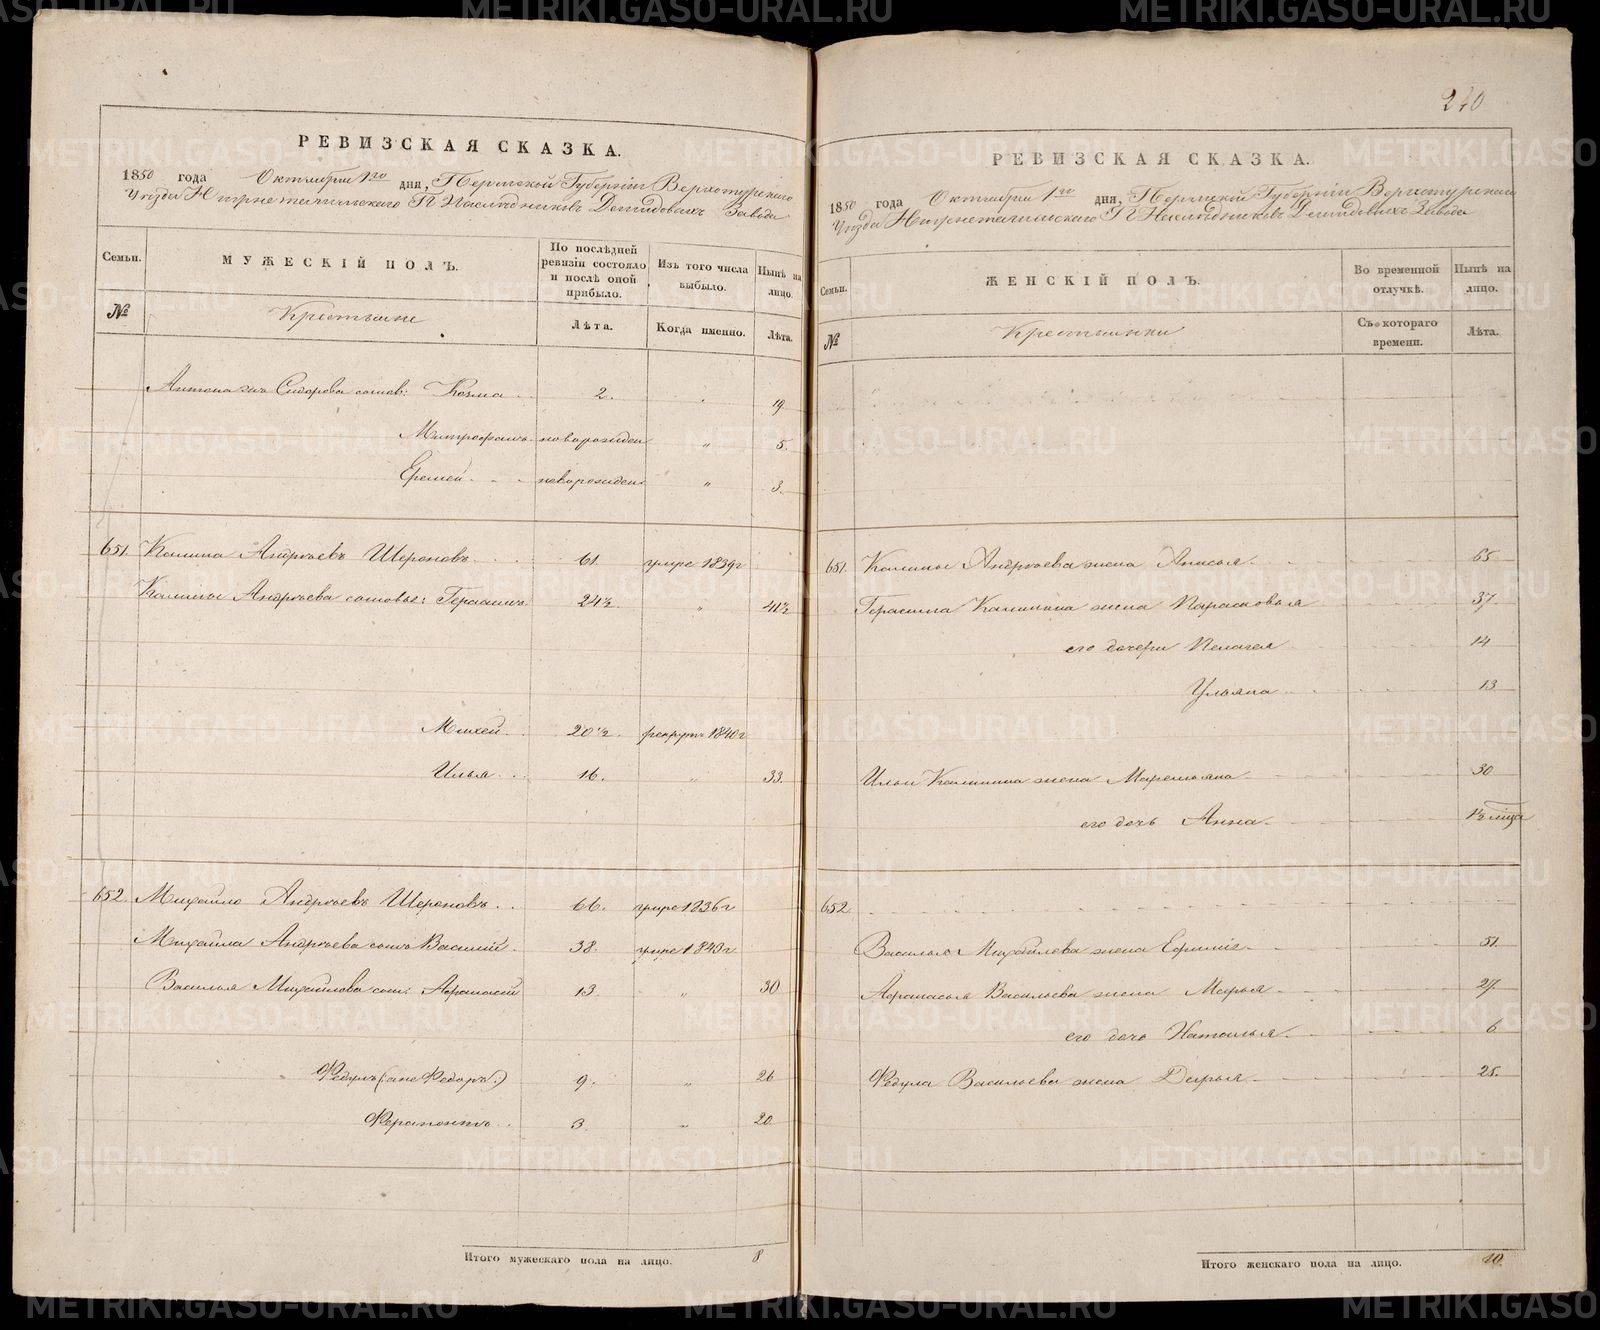 240
РЕВИЗСКАЯ СКАЗКА.
1850 года Октября 1го дня, Пермской Губерніи Верхотурскаго
Уѣзда Нижнетагильскаго Гг. Наслѣдниковъ Демидовыхъ Завода
Семьи. МУЖЕСКІЙ ПОЛЪ. По послѣдней ревизіи состояло и послѣ оной прибыло. Изъ того числа выбыло. Нынѣ на лицо.
№ Крестьяне Лѣта. Когда именно. Лѣта.
Антона Сидорова сынов: Козма 2. 19
Митрофанъ новорожден „ 5.
Еремей новорожден „ 3.
651. Калина Андреевъ Шероновъ 61. умре 1839г
Калины Андреева сыновья: Герасимъ 24½ „ 41½
Михей 20½. рекрут 1840г
Илья 16. „ 33.
652. Михайло Андреевъ Шероновъ 66. умре 1836г
Михайла Андреева сынъ Василий 38. умре 1843г
Василья Михайлова сын: Афанасий 13. „ 30
Федулъ (он же Федоръ) 9. „ 26
Ферапонтъ 3. „ 20
Итого мужескаго пола на лицо. 8
РЕВИЗСКАЯ СКАЗКА.
1850 года Октября 1го дня, Пермской Губерніи Верхотурскаго
Уѣзда Нижнетагильскаго Гг. Наслѣдниковъ Демидовыхъ Завода
Семьи. ЖЕНСКІЙ ПОЛЪ. Во временной отлучкѣ. Нынѣ на лицо.
№ Крестьянки Съ котораго времени. Лѣта.
651. Калины Андреева жена Анисья 65
Герасима Калинина жена Парасковья 37
его дочери Пелагея 14
Ульяна 13
Ильи Калинина жена Маремьяна 30
его дочь Анна 1½ мѣца
652.
Василья Михайлова жена Ефимія 51
Афанасья Васильева жена Марья 27
его дочь Наталья 6
Федула Васильева жена Дарья 25.
Итого женскаго пола на лицо. 10
METRIKI.GASO-URAL.RU